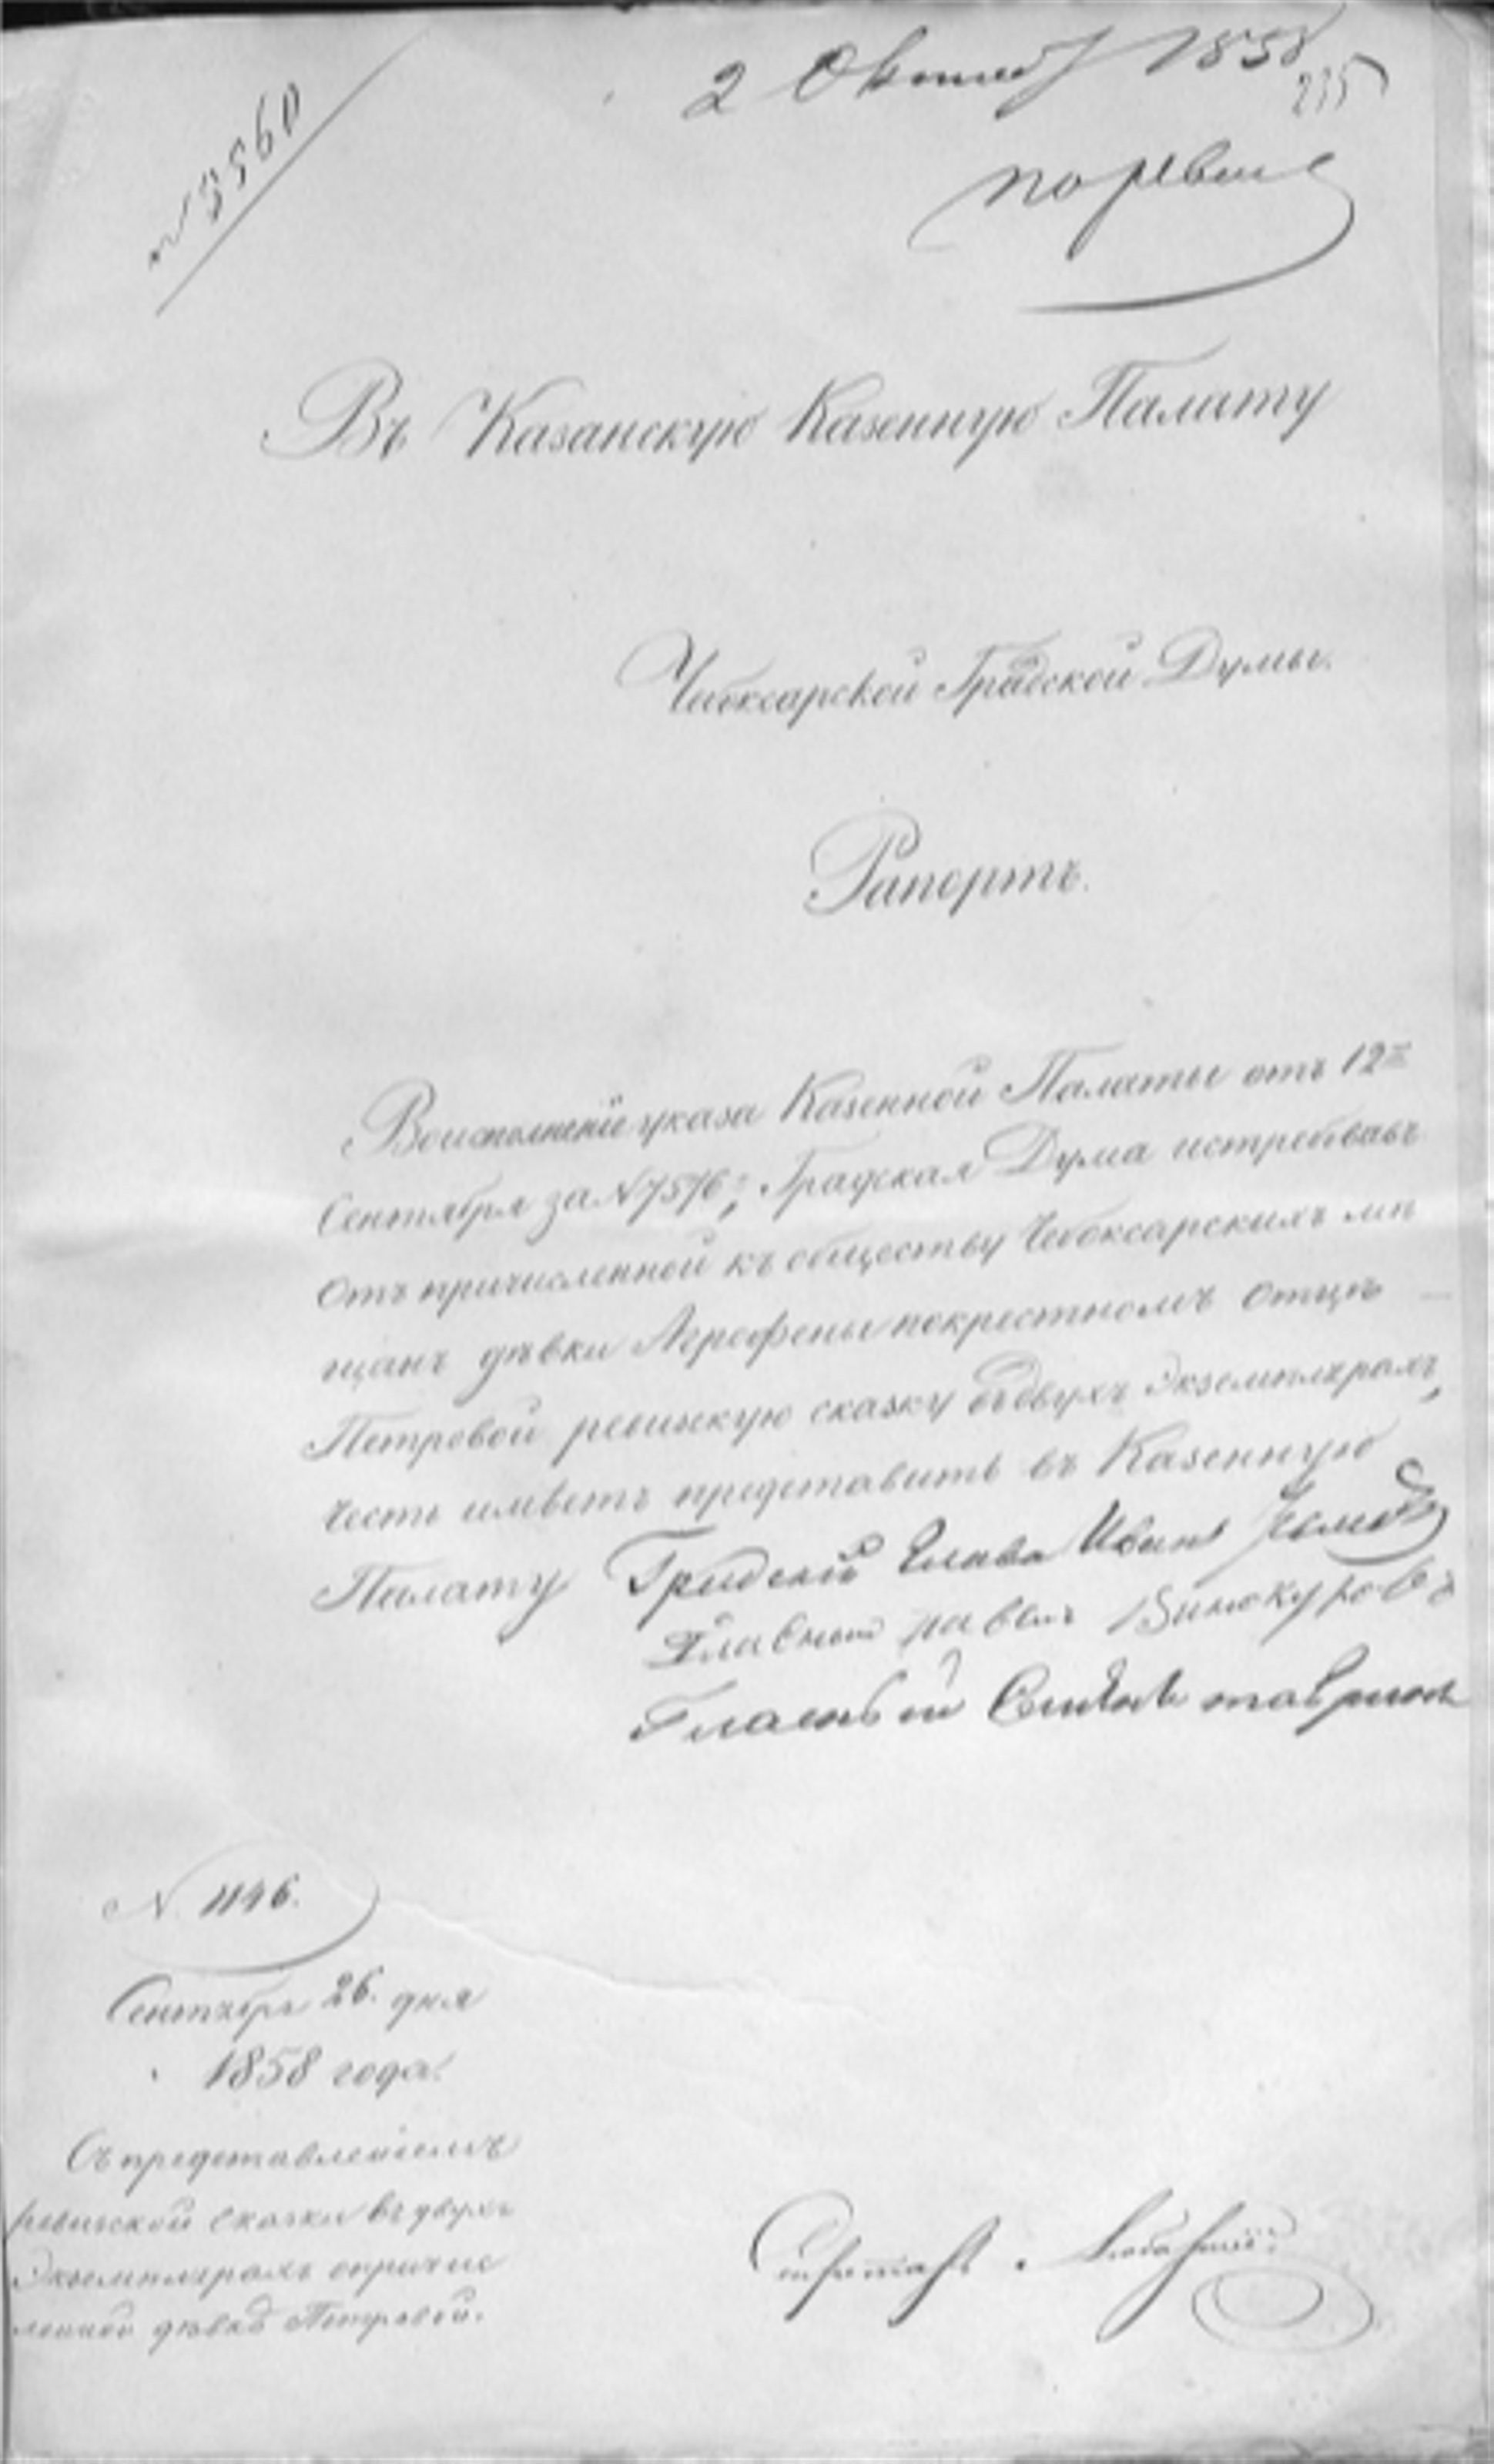 2 Октяб 1858
235
№ 3560
по ревиз
Въ Казанскую Казенную Палату
Чебоксарской Градской Думы.
Рапортъ.
Воисполненіе указа Казенной Палаты отъ 12го
Сентября за № 7576, Градская Дума истребовавъ
отъ причисленной къ обществу Чебоксарскихъ мѣ
щанъ дѣвки Агрофены покрестномъ отцѣ
Петровой ревизкую сказку въ двухъ экземплярахъ,
честь имѣетъ представить въ Казенную
Палату Градской Глава Иванъ
Гласный Павелъ Винокуровъ
Гласный
№ 1146.
Сентября 26. дня
1858 года.
Съ представленіемъ
ревизской сказки въ двухъ
экземплярахъ опричис
ленной дѣвкѣ Петровой.
Секретарь